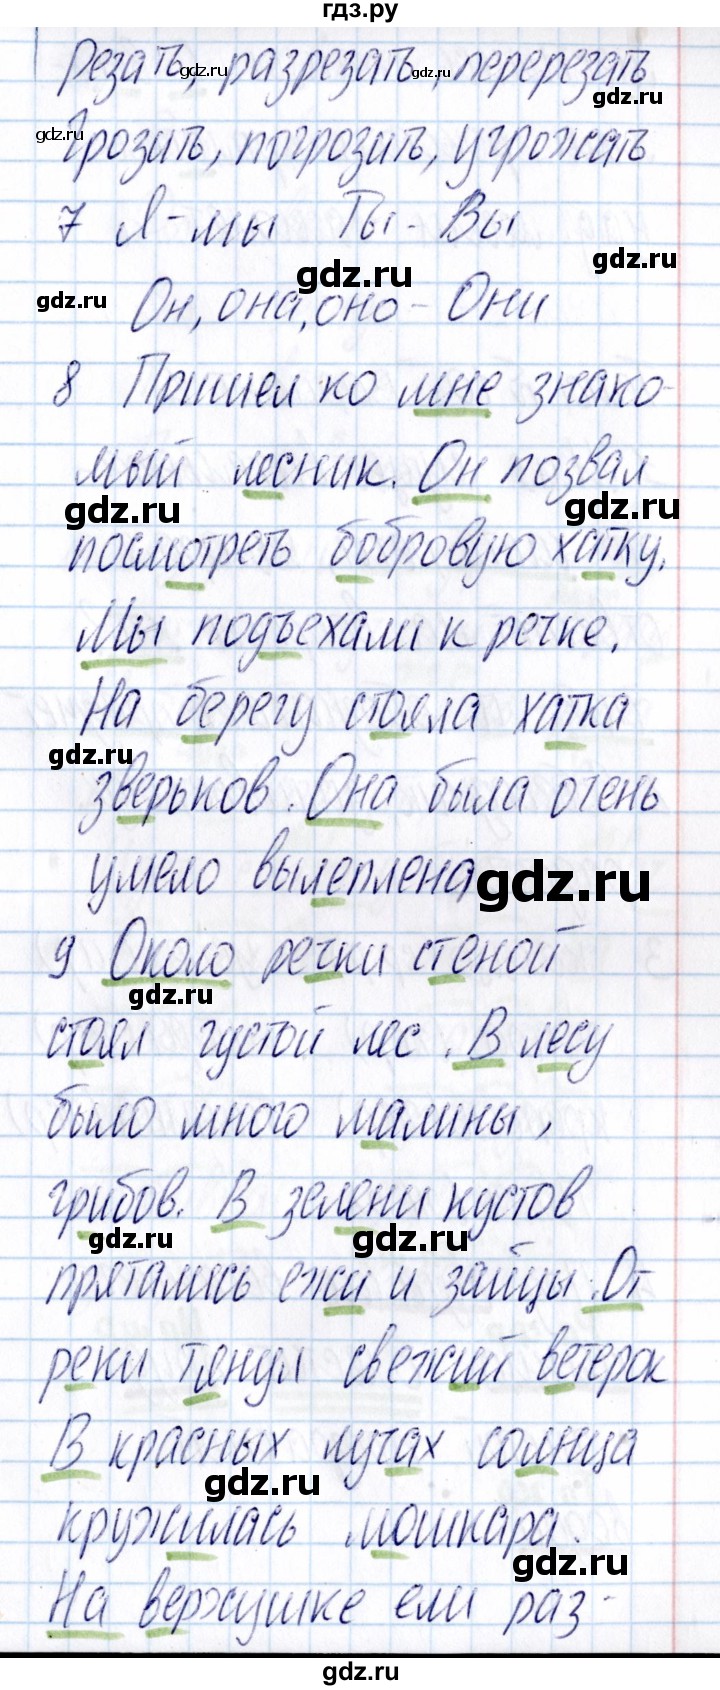 гдз.ру
Резать, разрезать, перерезать
gdz.ru gdz.ru gdz.ru
Грозить, погрозить, угрожать
gdz.ru
7 Я-мы Ты-Вы
gdz.ru gdz.ru
gdz.ru
Он, она, оно - Они
8 Пришел ко мне знако-
мый лесник. Он позвал
gdz.ru gdz.ru
посмотреть бобровую хатку.
Мы подъехали к речке.
На берегу стояла хатка
gdz.ru
зверьков. Она была очень
умело вылеплена
gdz.ru
9 Около речки стеной
gdz.ru
стоял густой лес. В лесу
было много малины,
грибов. В зелени кустов
gdz.ru gdz.ru
прятались ежи и зайцы. От
реки тянул свежий ветерок
В красных лучах солнца
gdz.ru
кружилась мошкара.
gdz.ru
На верхушке ели раз-
gdz.ru